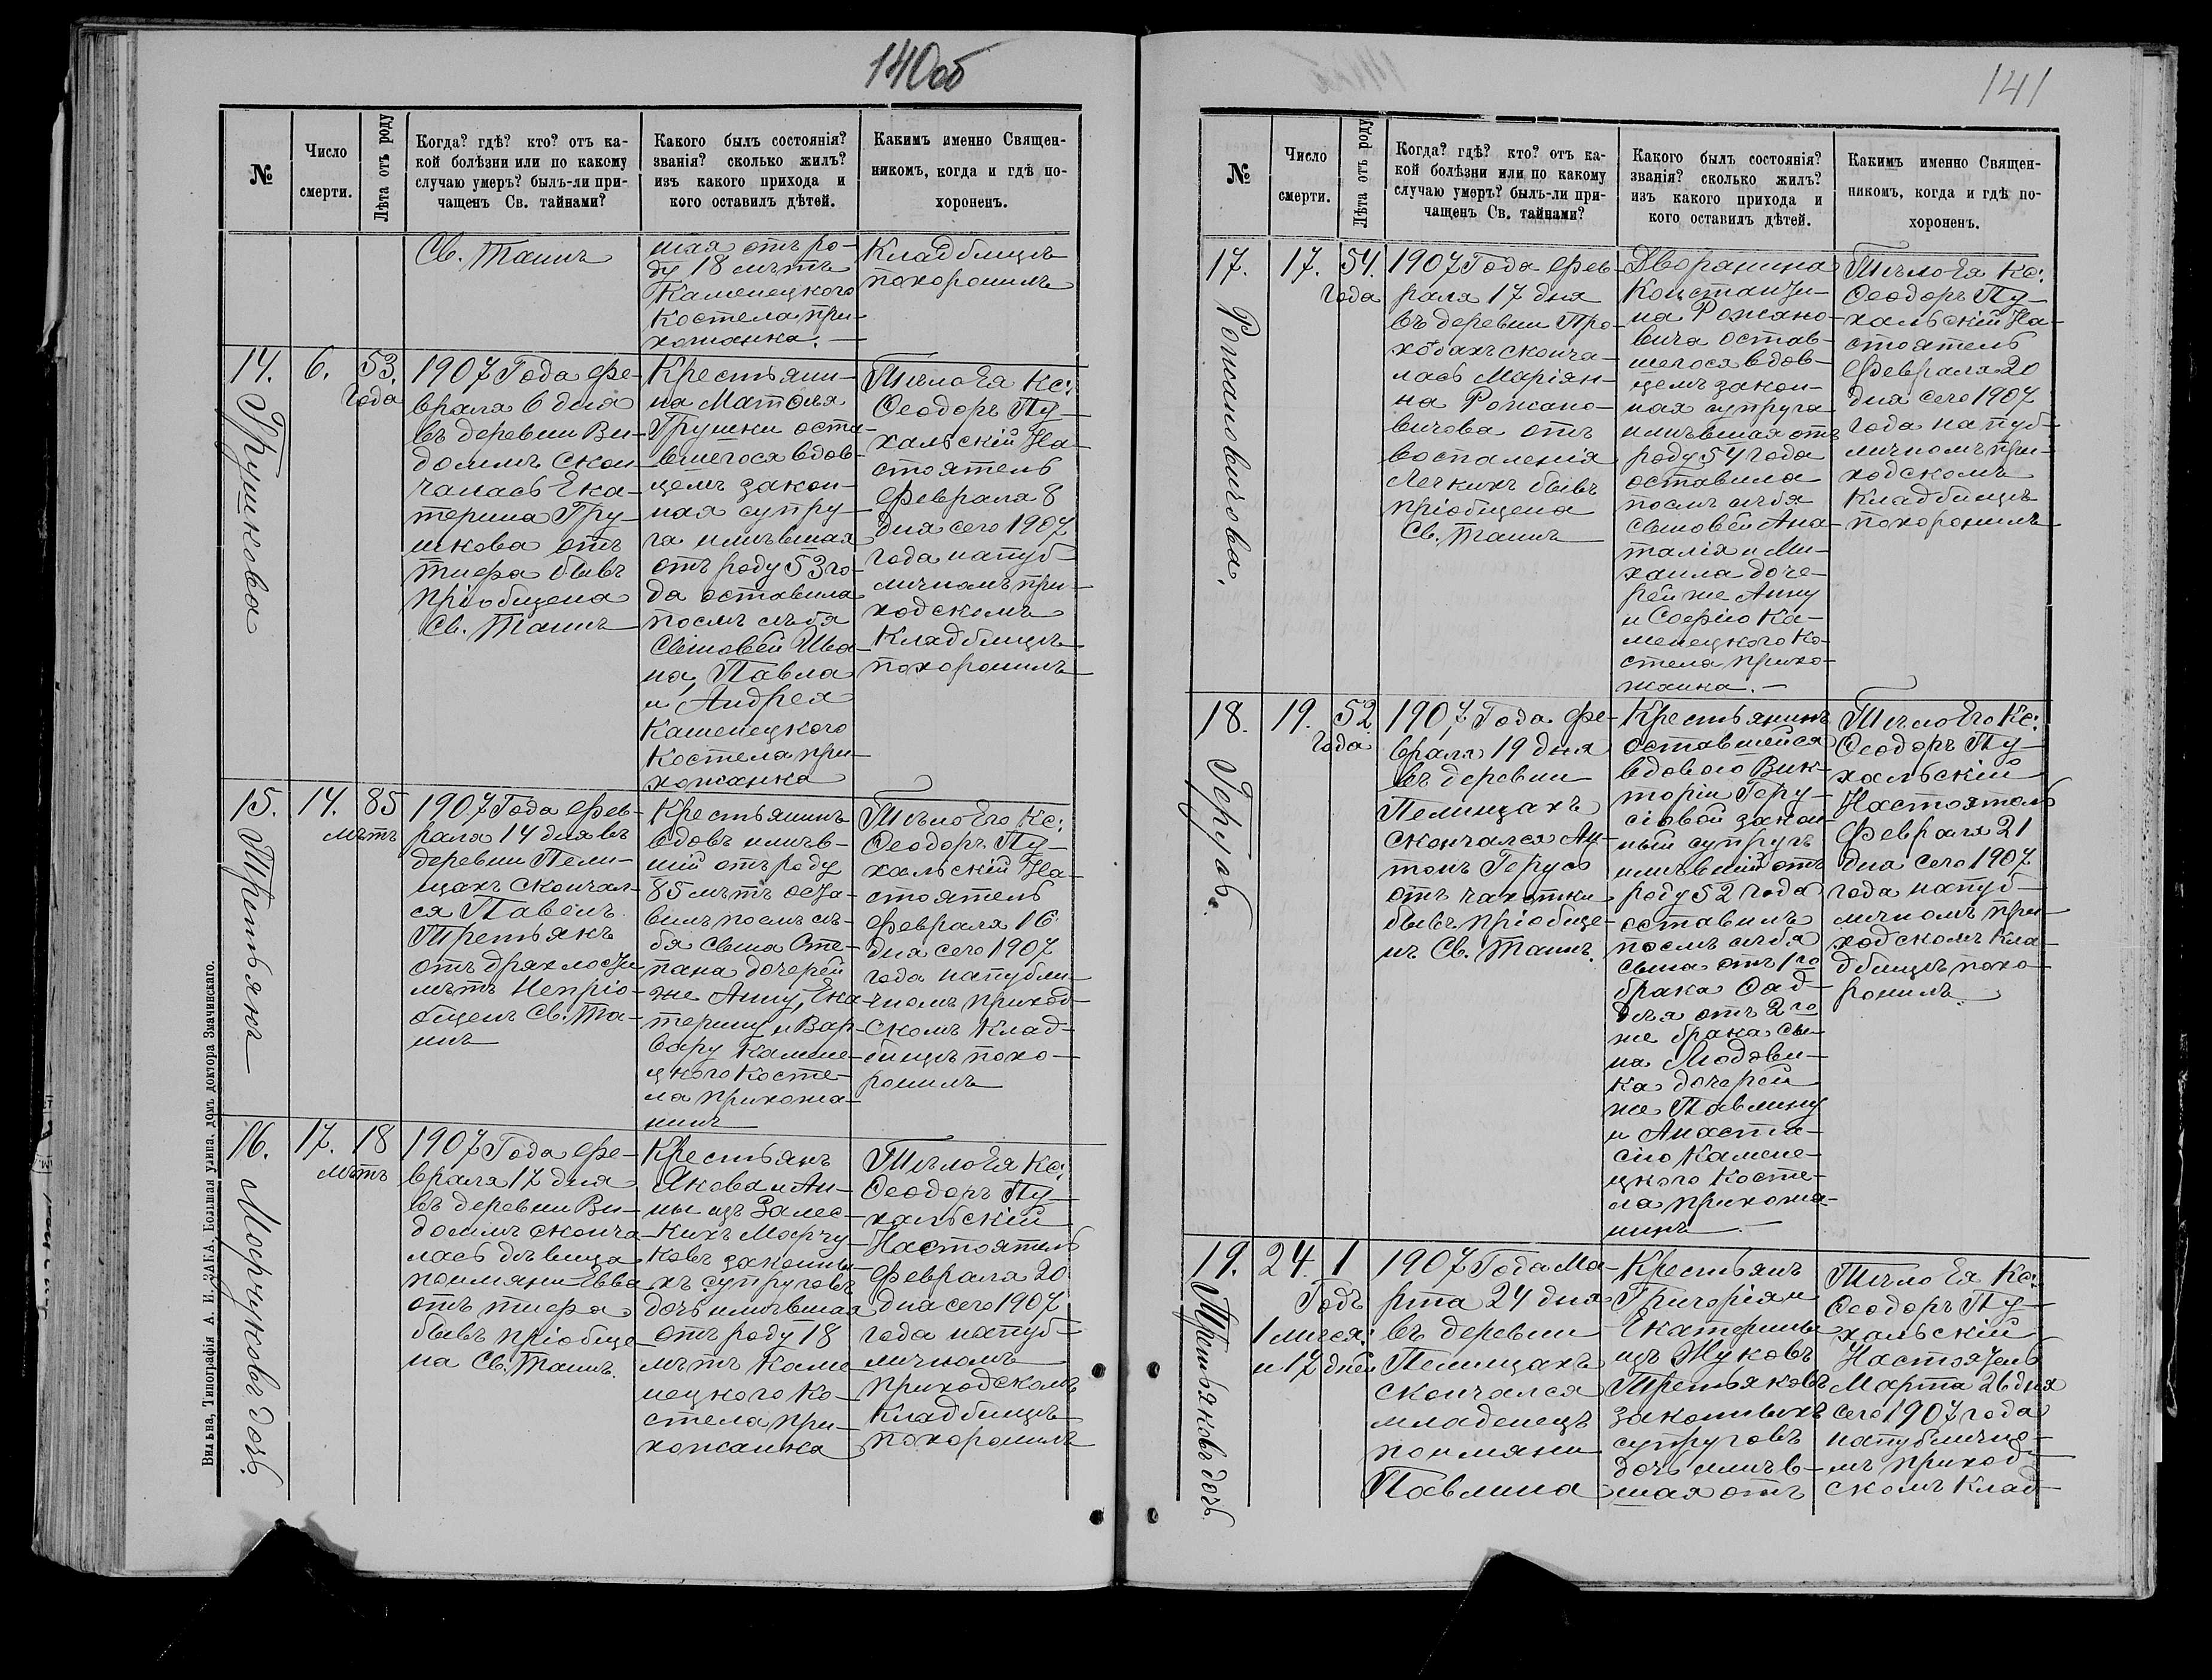 140об
№
Число
смерти.
Лѣта отъ роду
Когда? гдѣ? кто? отъ ка-
кой болѣзни или по какому
случаю умеръ? былъ-ли при-
чащенъ Св. тайнами?
Какого былъ состоянія?
званія? сколько жилъ?
изъ какого прихода и
кого оставилъ дѣтей.
Какимъ именно Священ-
никомъ, когда и гдѣ по-
хороненъ.
Св. Таинъ
шая отъ ро-
ду 18 лѣтъ
Каменецкого
Костела при-
хожанка. —
Кладбищѣ
похоронилъ
14.
Грушкова
6.
53.
года
1907 Года Фе-
враля 6 дня
въ деревни Ви-
домлѣ скон-
чалась Ека-
терина Гру-
шкова отъ
тифа бывъ
пріобщена
Св. Таинъ
Крестьяни-
на Матѳея
Грушки оста-
вшегося вдов-
цемъ закон-
ная супру-
га имѣвшая
отъ роду 53 го-
да оставила
послѣ себя
сыновей Ива-
на, Павла
и Андрея
Каменецкого
Костела при-
хожанка
Тѣло Ея Кс:
Ѳеодоръ Пу-
хальскій На-
стоятель
Февраля 8
дня сего 1907
года на пуб-
личномъ при-
ходскомъ
Кладбищѣ
похоронилъ
15.
Третьякъ
14.
85
лѣтъ
1907 Года Фев-
раля 14 дня въ
деревни Пели-
щахъ скончал-
ся Павелъ
Третьякъ
отъ дряхлости
лѣтъ непріо-
бщенъ Св. Та-
инъ
Крестьянинъ
вдовъ имѣв-
шій отъ роду
85 лѣтъ оста-
вилъ послѣ се-
бя сына Сте-
пана дочерей
же Анну, Ека-
терину и Вар-
вару Камене-
цкого Косте-
ла прихожа-
нинъ
Тѣло Его Кс:
Ѳеодоръ Пу-
хальскій На-
стоятель
Февраля 16
дня сего 1907
года на публи-
чномъ приход-
скомъ Клад-
бищѣ похо-
ронилъ
16.
Марчуковъ дочь.
17.
18
лѣтъ
1907 Года Фе-
враля 17 дня
въ деревни Ви-
домлѣ сконча-
лась дѣвица
по имяни Евва
отъ тифа
бывъ пріобще-
на Св. Таинъ.
Крестьянъ
Якова и Ан-
ны изъ Залес-
кихъ Марчу-
ковъ законны-
хъ супруговъ
дочь имѣвшая
отъ роду 18
лѣтъ Каме-
нецкого Ко-
стела при-
хожанка
Тѣло Ея Кс:
Ѳеодоръ Пу-
хальскій
Настоятель
Февраля 20
дня сего 1907
года на пуб-
личномъ
приходскомъ
Кладбищѣ
похоронилъ
Вильна, Типографія А. И. ЗАКА, Большая улица, домъ доктора Значинскаго.
141
№
Число
смерти.
Лѣта отъ роду
Когда? гдѣ? кто? отъ ка-
кой болѣзни или по какому
случаю умеръ? былъ-ли при-
чащенъ Св. тайнами?
Какого былъ состоянія?
званія? сколько жилъ?
изъ какого прихода и
кого оставилъ дѣтей.
Какимъ именно Священ-
никомъ, когда и гдѣ по-
хороненъ.
17.
Рожановичова.
17.
54.
года
1907 Года Фев-
раля 17 дня
въ деревни Про-
ходахъ сконча-
лась Маріян-
на Рожано-
вичова отъ
воспаления
Легкихъ бывъ
пріобщена
Св. Таинъ
Дворянина
Констанци-
на Рожано-
вича остав-
шегося вдов-
цемъ закон-
ная супруга
имѣвшая отъ
роду 54 года
оставила
послѣ себя
сыновей Ана-
талія и Ми-
хаила доче-
рей же Анну
и Софію Ка-
менецкого Ко-
стела прихо-
жанка. —
Тѣло Ея Кс:
Ѳеодоръ Пу-
хальскій На-
стоятель
Февраля 20
дня сего 1907
года на пуб-
личномъ при-
ходскомъ
Кладбищѣ
похоронилъ
18.
Герусъ.
19.
52
года
1907 Года Фе-
враля 19 дня
въ деревни
Пелищахъ
скончался Ан-
тонъ Герусъ
отъ чахотки
бывъ пріобще-
нъ Св. Таинъ.
Крестьянинъ
оставшейся
вдовою Вик-
торіи Геру-
сіовой закон-
ный супругъ
имѣвшій отъ
роду 52 года
оставилъ
послѣ себя
сына отъ 1го
брака Ѳад-
дея отъ 2го
же брака сы-
на Людови-
ка дочерей
же Павлину
и Анаста-
сію Камене-
цкого Косте-
ла прихожа-
нинъ. —
Тѣло Его Кс:
Ѳеодоръ Пу-
хальскій
Настоятель
Февраля 21
дня сего 1907
года на пуб-
личномъ при-
ходскомъ Кла-
дбищѣ похо-
ронилъ.
19.
Третьяковъ дочь.
24.
1
Годъ
1 мѣсяц:
и 17 дней
1907 Года Ма-
рта 24 дня
въ деревни
Пелищахъ
скончался
младенецъ
по имяни
Павлина
Крестьянъ
Григорія и
Екатерины
изъ Жуковъ
Третьяковъ
законныхъ
супруговъ
дочь имѣв-
шая отъ
Тѣло Ея Кс:
Ѳеодоръ Пу-
хальскій
Настоятель
Марта 26 дня
сего 1907 года
на публично-
мъ приход-
скомъ Клад-